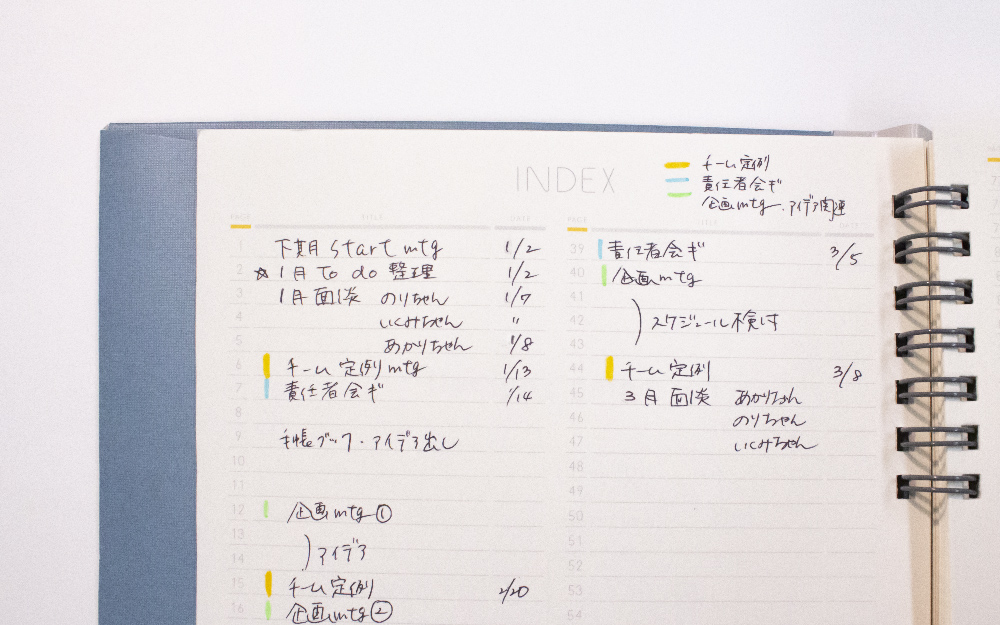 INDEX
チーム定例
責任者会ギ
企画mtg・アイデア関連
PAGE TITLE DATE
1 下期 start mtg 1/2
2 ☆1月 To do 整理 1/2
3 1月面談 のりちゃん 1/7
4 いくみちゃん 〃
5 あかりちゃん 1/8
6 チーム定例mtg 1/13
7 責任者会ギ 1/14
8
9 手帳ブック・アイデア出し
10
11
12 企画mtg①
13
14 アイデア
15 チーム定例 2/20
16 企画mtg②
PAGE TITLE DATE
39 責任者会ギ 3/5
40 企画mtg
41
42 スケジュール検討
43
44 チーム定例 3/8
45 3月面談 あかりちゃん
46 のりちゃん
47 いくみちゃん
48
49
50
51
52
53
54